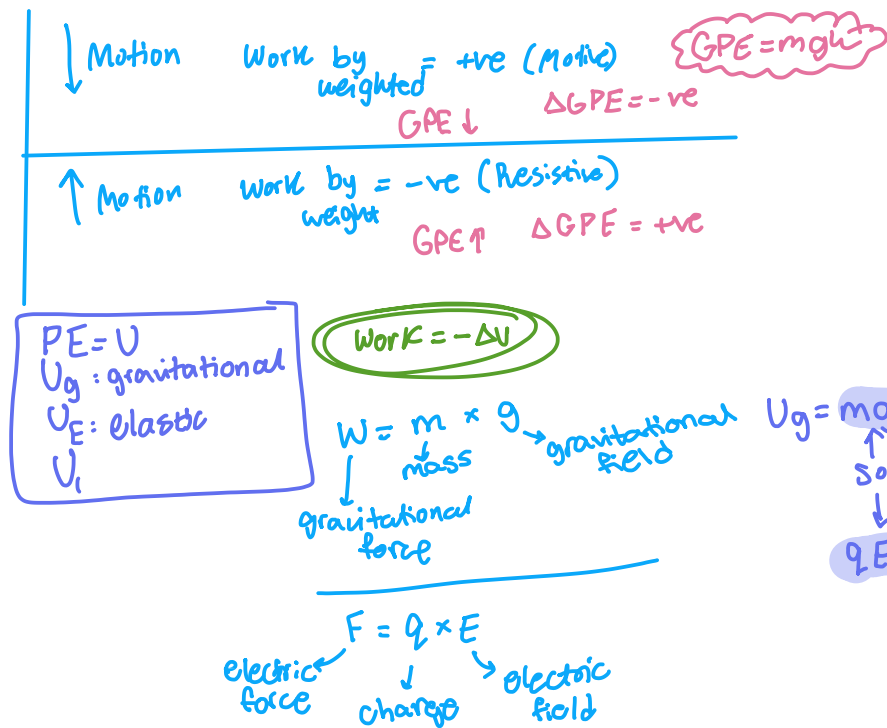 ↓ Motion Work by weighted = +ve (Motive)
GPE = mgh
GPE ↓ ΔGPE = -ve
↑ Motion Work by weight = -ve (Resistive)
GPE ↑ ΔGPE = +ve
PE = U
Ug : gravitational
UE : elastic
U,
Work = -ΔU
W = m × g
mass
gravitational field
gravitational force
Ug = mg
so
qE
F = q × E
electric force
charge
electric field